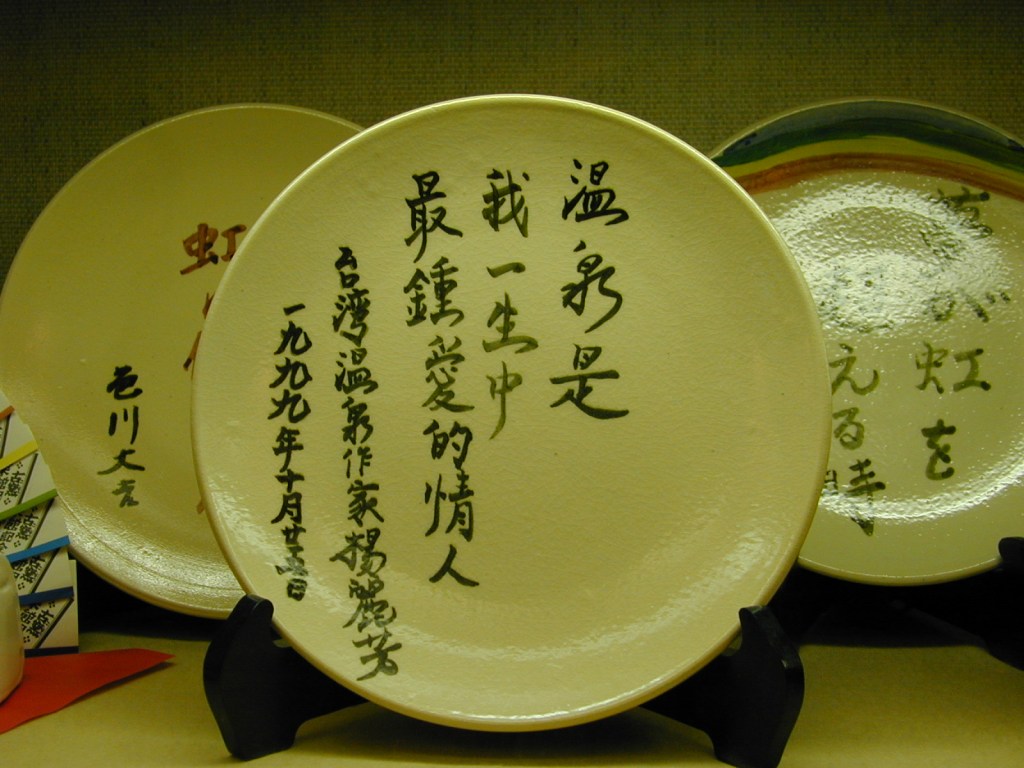 温泉是
我一生中
最鍾愛的情人
台湾温泉作家楊麗芳
一九九九年十月廿五日
虹
色川大吉
虹を
える時